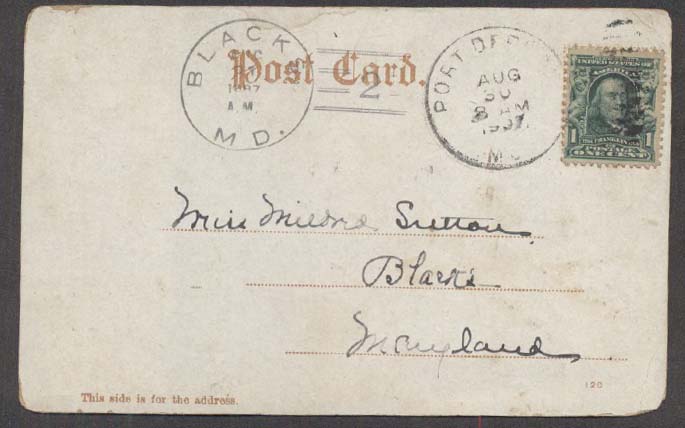 BLACKS
1907
A.M.
MD.
Post Card.
2
PORT DEPOSIT
AUG
30
8 AM
1907
MD
FRANKLIN
1
ONE CENT
1
Miss Mildred Sutton
Blacks
Maryland
120
This side is for the address.